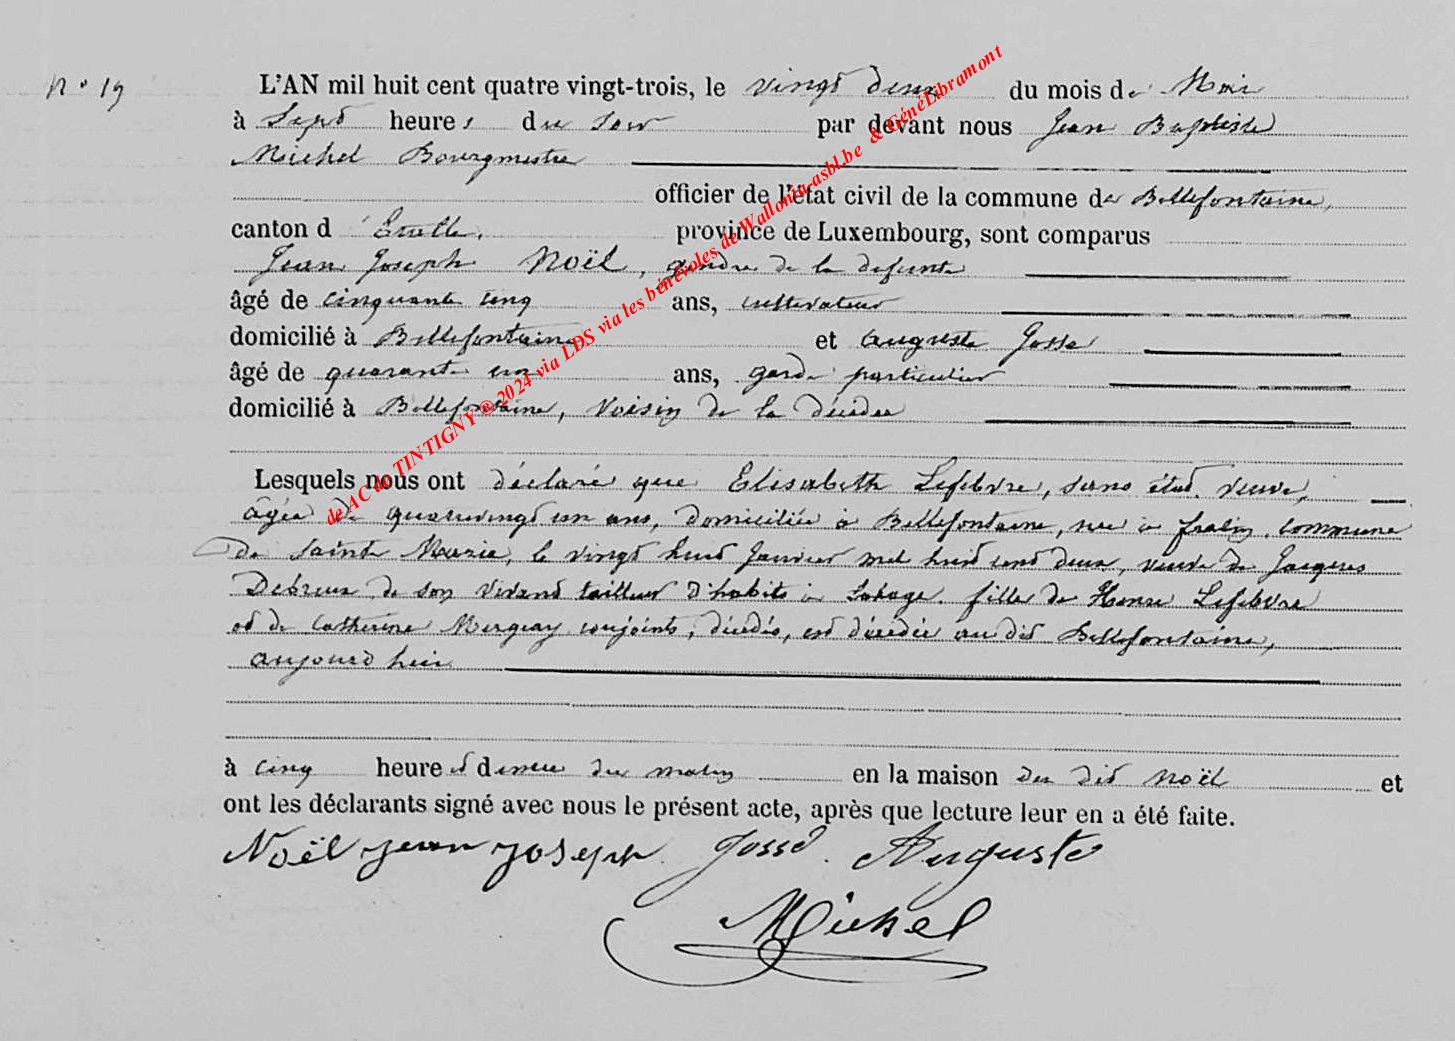 N° 19
L'AN mil huit cent quatre vingt-trois, le vingt deux du mois de Mai
à Sept heures du soir par devant nous Jean Baptiste
Michel Bourgmestre
officier de l'état civil de la commune de Bellefontaine,
canton d'Etalle, province de Luxembourg, sont comparus
Jean Joseph Noël, gendre de la defunte
âgé de cinquante cinq ans, cultivateur
domicilié à Bellefontaine et Auguste Josse
âgé de quarante un ans, garde particulier
domicilié à Bellefontaine, voisin de la décédée
Lesquels nous ont déclaré que Elisabeth Lefebvre, sans état, veuve,
âgée de quatrevingt un ans, domiciliée à Bellefontaine, née à fratin, commune
de Sainte Marie, le vingt huit Janvier mil huit cent deux, veuve de Jacques
de son vivant tailleur d'habits à Lahage, fille de Henri Lefebvre
et de Catherine conjoints, décédés, est décédée au dit Bellefontaine,
aujourd'hui
à cinq heures du matin en la maison du dit Noël et
ont les déclarants signé avec nous le présent acte, après que lecture leur en a été faite.
Noël jean joseph. Josse. Auguste
Michel
de AC de TINTIGNY © 2024 via LDS via les bénévoles de Wallonia-asbl.be & GénéLibramont